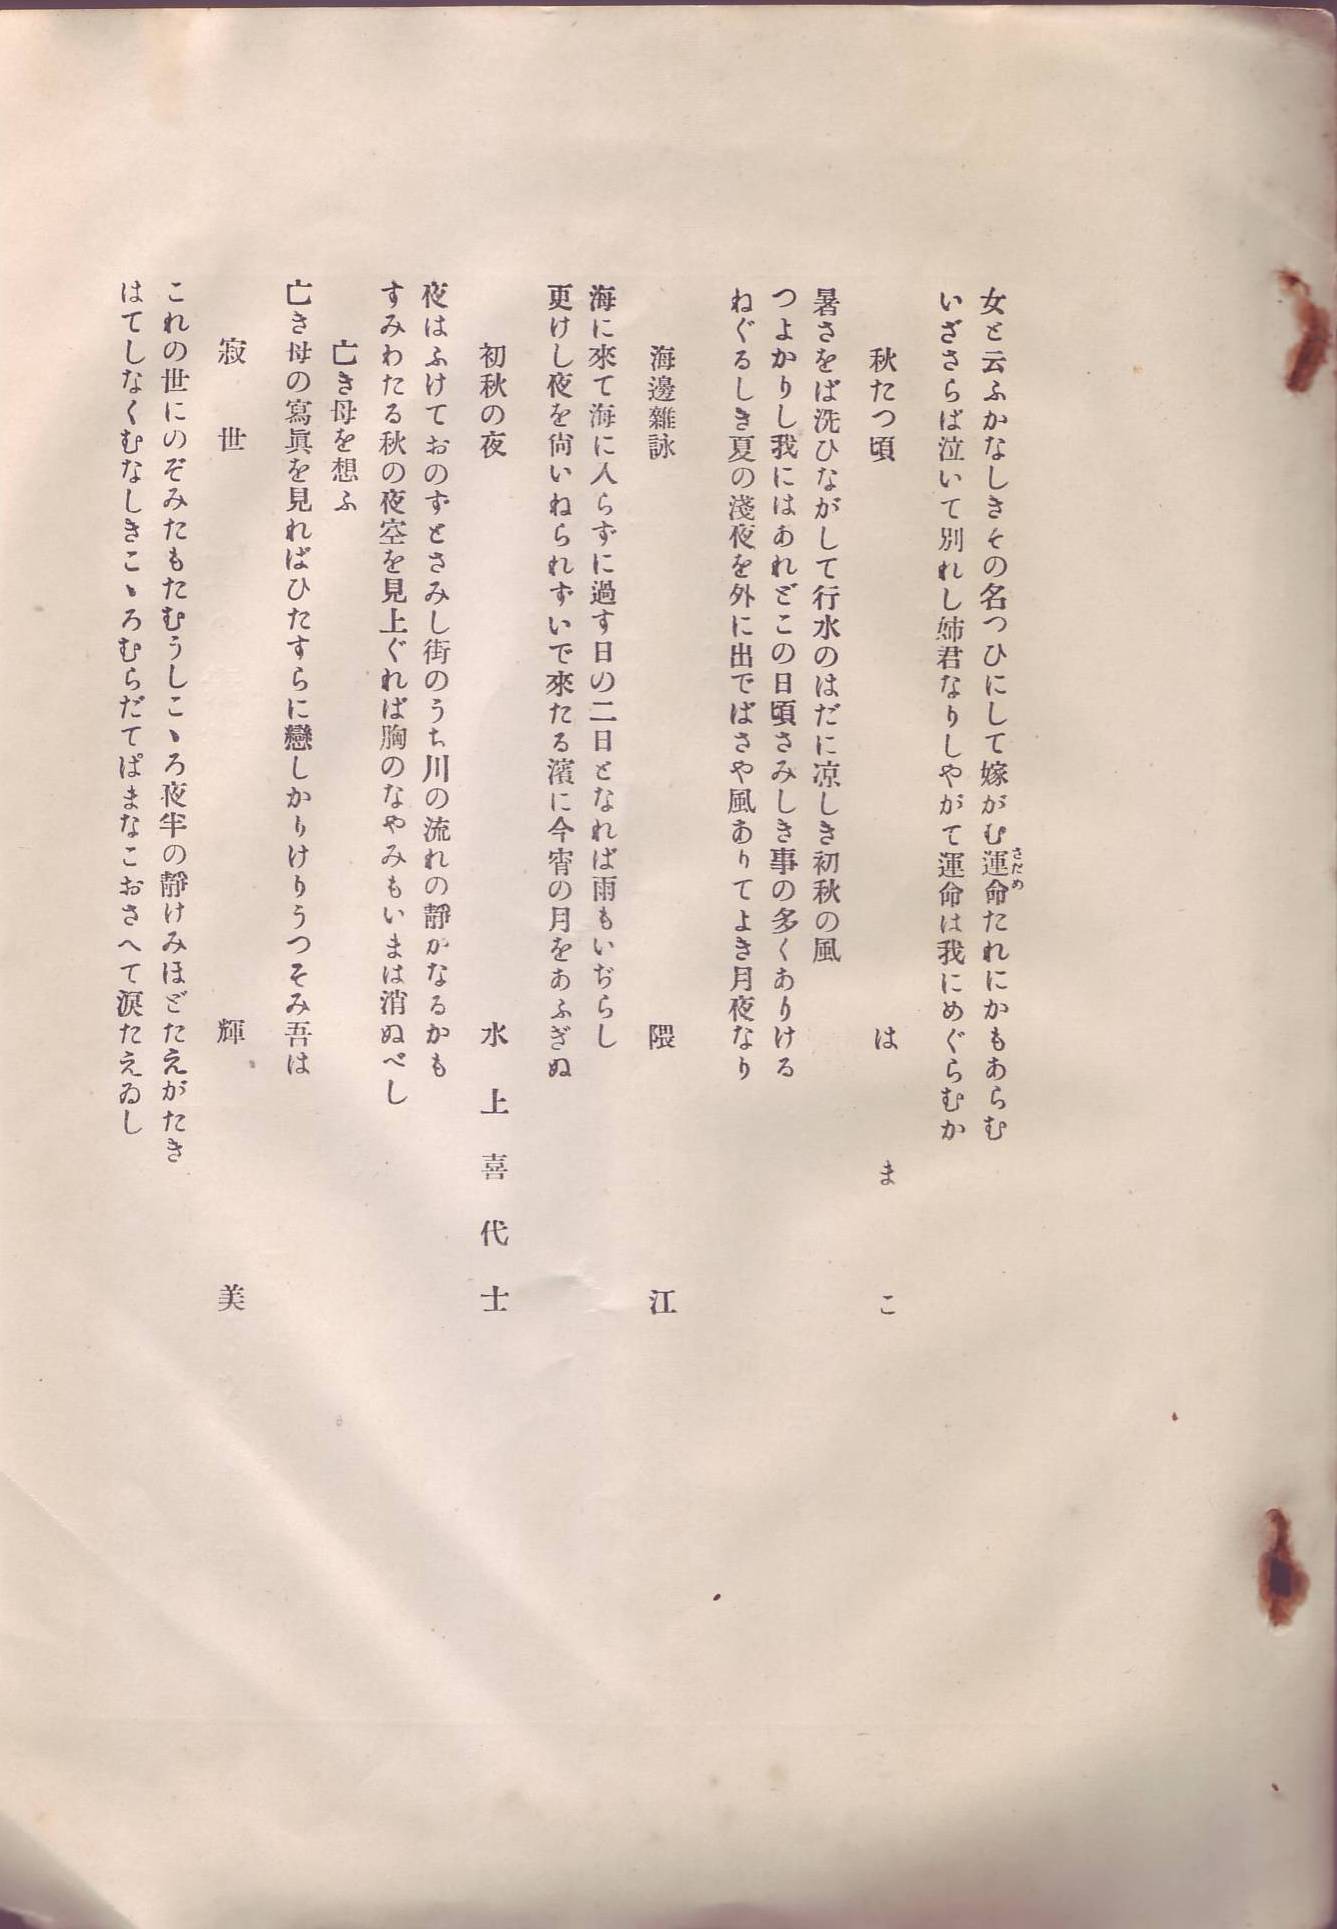 女と云ふかなしきその名つひにして嫁がむ運命たれにかもあらむ
さだめ
いざさらば泣いて別れし姉君なりしやがて運命は我にめぐらむか
秋たつ頃　はまこ
暑さをば洗ひながして行水のはだに凉しき初秋の風
つよかりし我にはあれどこの日頃さみしき事の多くありける
ねぐるしき夏の淺夜を外に出でばさや風ありてよき月夜なり
海邊雜詠　隈江
海に來て海に入らずに過す日の二日となれば雨もいぢらし
更けし夜を尙いねられずいで來たる濱に今宵の月をあふぎぬ
初秋の夜　水上喜代士
夜はふけておのずとさみし街のうち川の流れの靜かなるかも
すみわたる秋の夜空を見上ぐれば胸のなやみもいまは消ぬべし
亡き母を想ふ
亡き母の寫眞を見ればひたすらに戀しかりけりうつそみ吾は
寂世　輝美
これの世にのぞみたもたむうしこゝろ夜半の靜けみほどたえがたき
はてしなくむなしきこゝろむらだてばまなこおさへて淚たえゐし